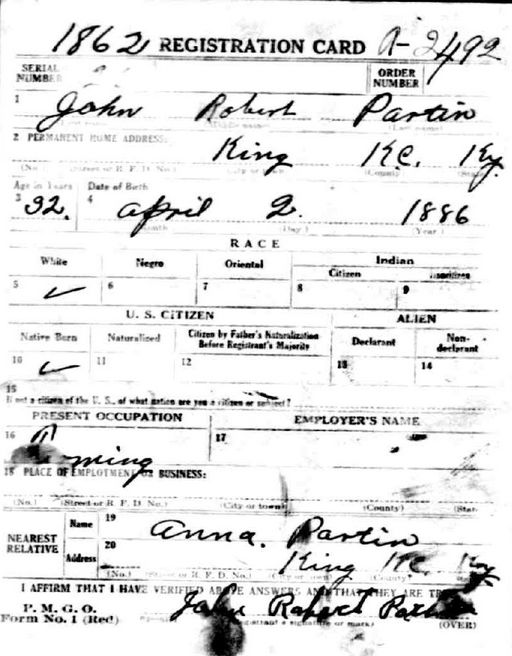 1862 REGISTRATION CARD A-2492
SERIAL NUMBER
ORDER NUMBER
1 John Robert Partin
2 PERMANENT HOME ADDRESS:
King K.C. Ky.
(No.) (Street or R. F. D. No.) (City or town) (County) (State)
Age in Years Date of Birth
3 32. 4 April 2. 1886
(Month) (Day) (Year)
RACE
White Negro Oriental Indian
Citizen Noncitizen
5 ✓ 6 7 8 9
U. S. CITIZEN ALIEN
Native Born Naturalized Citizen by Father's Naturalization Before Registrant's Majority Declarant Non-declarant
10 ✓ 11 12 13 14
15
If not a citizen of the U. S., of what nation are you a citizen or subject?
PRESENT OCCUPATION EMPLOYER'S NAME
16 17
18 PLACE OF EMPLOYMENT OR BUSINESS:
(No.) (Street or R. F. D. No.) (City or town) (County) (State)
NEAREST RELATIVE
Name 19 Anna. Partin
Address 20 King K.C. Ky
(No.) (Street or R. F. D. No.) (City or town) (County)
I AFFIRM THAT I HAVE VERIFIED ABOVE ANSWERS AND THAT THEY ARE TRUE
P. M. G. O.
Form No. 1 (Red) John Robert Partin
(Registrant's signature or mark) (OVER)